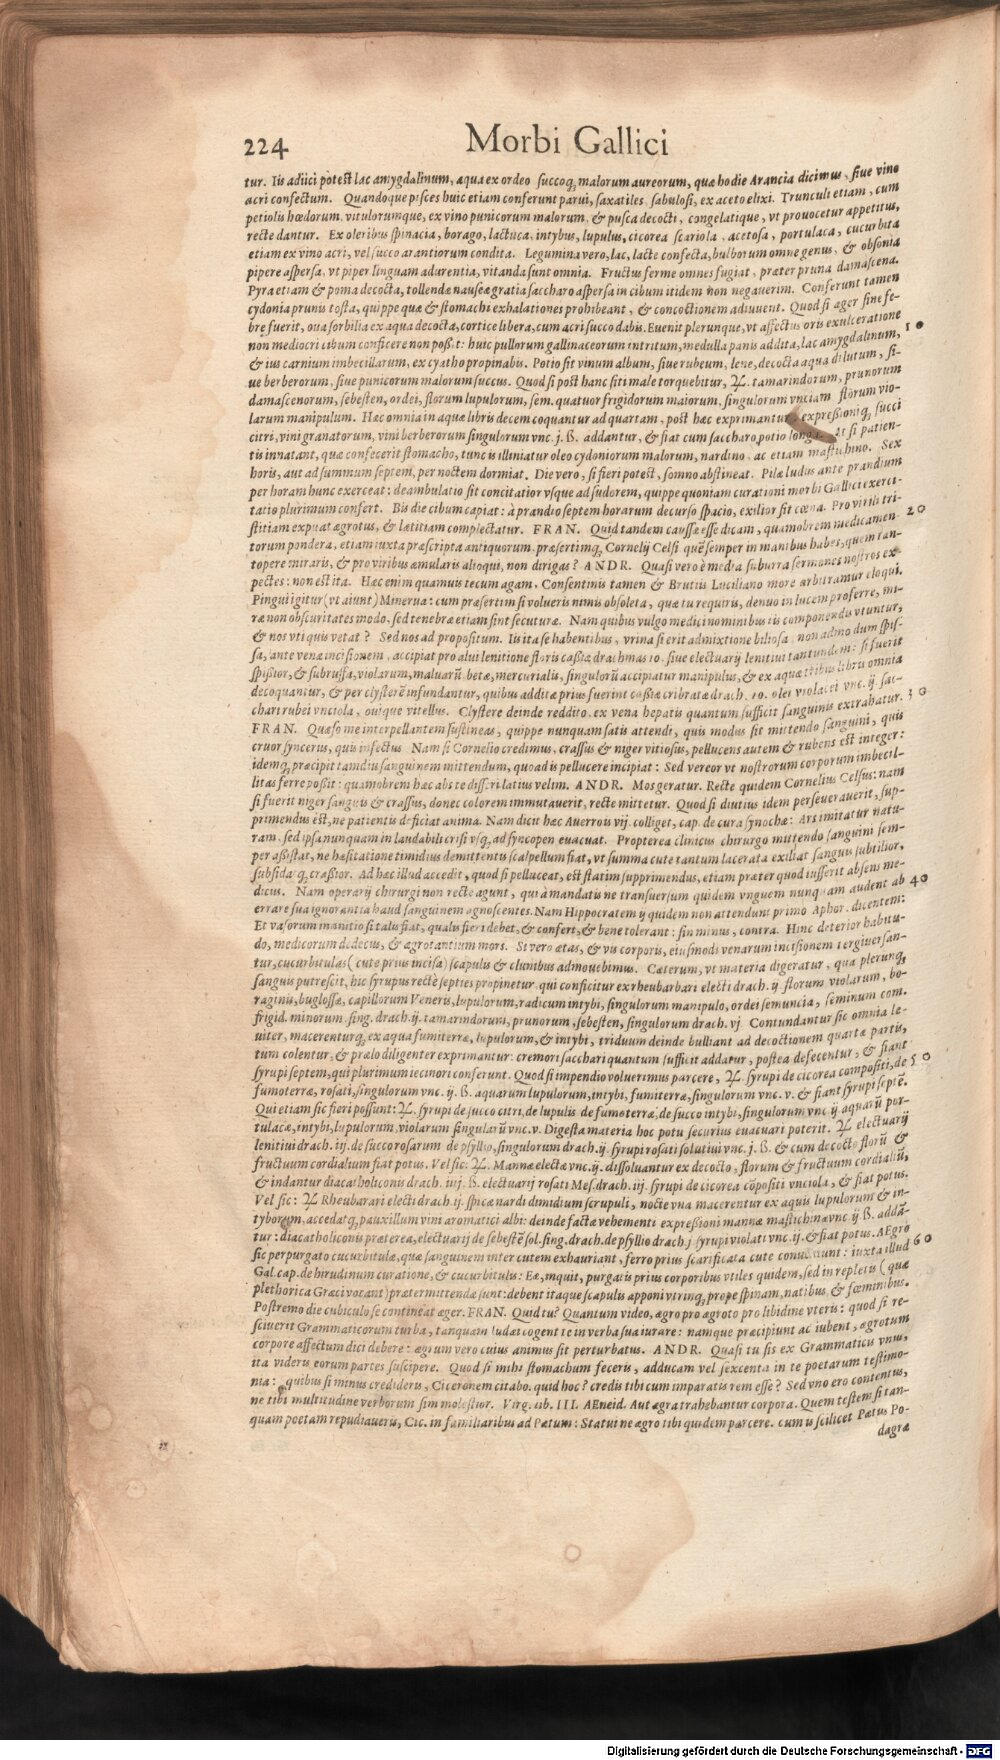 224 Morbi Gallici
tur. Iis adiici potest lac amygdalinum, aqua ex ordeo succoq; malorum aureorum, quæ hodie Arancia dicimus, siue vino
acri confectum. Quandoque pisces huic etiam conferunt parui, saxatiles, sabulosi, ex aceto elixi. Trunculi etiam, cum
petiolis hœdorum, vitulorumque, ex vino punicorum malorum, & pusca decocti, congelatique, vt prouocetur appetitus,
recte dantur. Ex oleribus spinacia, borago, lactuca, intybus, lupulus, cicorea scariola, acetosa, portulaca, cucurbita
etiam ex vino acri, vel succo arantiorum condita. Legumina vero, lac, lacte confecta, bulborum omne genus, & obsonia
pipere aspersa, vt piper linguam adurentia, vitanda sunt omnia. Fructus ferme omnes fugiat, præter pruna damascena.
Pyra etiam & poma decocta, tollendæ nauseæ gratia saccharo aspersa in cibum itidem non negauerim. Conferunt tamen
cydonia prunis tosta, quippe quæ & stomachi exhalationes prohibeant, & concoctionem adiuuent. Quod si æger sine fe-
bre fuerit, oua sorbilia ex aqua decocta, cortice libera, cum acri succo dabis. Euenit plerunque, vt affectus oris exulceratione
non mediocri cibum conficere non poßit: huic pullorum gallinaceorum intritum, medulla panis addita, lac amygdalinum, 10
& ius carnium imbecillarum, ex cyatho propinabis. Potio sit vinum album, siue rubeum, lene, decocta aqua dilutum, si-
ue berberorum, siue punicorum malorum succus. Quod si post hanc siti male torquebitur, ℞. tamarindorum, prunorum
damascenorum, sebesten, ordei, florum lupulorum, sem. quatuor frigidorum maiorum, singulorum vnciam, florum vio-
larum manipulum. Hæc omnia in aquæ libris decem coquantur ad quartam, post hæc exprimantur, expreßioniq; succi
citri, vini granatorum, vini berberorum singulorum vnc. j. ß. addantur, & fiat cum saccharo, potio longa. At si patien-
tis innatant, quæ confecerit stomacho, tunc is illiniatur oleo cydoniorum malorum, nardino, ac etiam mastichino. Sex
horis, aut ad summum septem, per noctem dormiat. Die vero, si fieri potest, somno abstineat. Pilæ ludus ante prandium
per horam hunc exerceat: deambulatio sit concitatior vsque ad sudorem, quippe quoniam curationi morbi Gallici exerci-
tatio plurimum confert. Bis die cibum capiat: à prandio septem horarum decurso spacio, exilior sit cœna. Pro virili tri-
stitiam expuat ægrotus, & lætitiam complectatur. FRAN. Quid tandem caussæ esse dicam, quamobrem medicamen- 20
torum pondera, etiam iuxta præscripta antiquorum, præsertimq; Cornelij Celsi quē semper in manibus habes, quem tan-
topere miraris, & pro viribus æmularis alioqui, non dirigas? ANDR. Quasi vero è media suburra sermones nostros ex-
pectes: non est ita. Hæc enim quamuis tecum agam, Consentinis tamen & Brutiis Luciliano more arbitramur eloqui.
Pingui igitur (vt aiunt) Minerua: cum præsertim si volueris nimis obsoleta, quæ tu requiris, denuo in lucem proferre, mi-
ræ non obscuritates modo, sed tenebræ etiam sint secuturæ. Nam quibus vulgo medici nominibus iis componendis vtuntur,
& nos vti quis vetat? Sed nos ad propositum. Iis ita se habentibus, vrina si erit admixtione biliosa, non admodum spis-
sa, ante venæ incisionem, accipiat pro alui lenitione floris caßiæ drachmas 10. siue electuarij lenitiui tantundem: si fuerit
spißior, & subruffa, violarum, maluarū, betæ, mercurialis, singulorū accipiatur manipulus, & ex aquæ tribus libris omnia
decoquantur, & per clysterē infundantur, quibus additæ prius fuerint caßiæ cribratæ drach. 10. olei violacei vnc. ij. sac-
chari rubei vnciola, ouique vitellus. Clystere deinde reddito, ex vena hepatis quantum sufficit sanguinis extrahatur. 30
FRAN. Quæso me interpellantem sustineas, quippe nunquam satis attendi, quis modus sit mittendo sanguini, quis
cruor syncerus, quis infectus. Nam si Cornelio credimus, crassus & niger vitiosus, pellucens autem & rubens est integer:
idemq; præcipit tamdiu sanguinem mittendum, quoad is pellucere incipiat: Sed vereor vt nostrorum corporum imbecil-
litas ferre poßit: quamobrem hæc abs te disseri latius velim. ANDR. Mos geratur. Recte quidem Cornelius Celsus: nam
si fuerit niger sanguis & crassus, donec colorem immutauerit, recte mittetur. Quod si diutius idem perseuerauerit, sup-
primendus est, ne patientis deficiat anima. Nam dicit hæc Auerrois vij. colliget, cap. de cura synochæ: Ars imitatur natu-
ram, sed ipsa nunquam in laudabili crisi vsq; ad syncopen euacuat. Propterea clinicus chirurgo mittendo sanguini sem-
per aßistat, ne hæsitatione timidius demittentis scalpellum fiat, vt summa cute tantum lacerata exiliat sanguis subtilior,
subsidatq; craßior. Ad hæc illud accedit, quod si pelluceat, est statim supprimendus, etiam præter quod iusserit absens me-
dicus. Nam operarij chirurgi non recte agunt, qui à mandatis ne transuersum quidem vnguem nunquam audent ab- 40
errare sua ignorantia haud sanguinem agnoscentes. Nam Hippocratem ij quidem non attendunt primo Aphor. dicentem:
Et vasorum inanitio si talis fiat, qualis fieri debet, & confert, & bene tolerant: sin minus, contra. Hinc deterior habitu-
do, medicorum dedecus, & ægrotantium mors. Si vero ætas, & vis corporis, eiusmodi venarum incisionem tergiuersan-
tur, cucurbitulas (cute prius incisa) scapulis & clunibus admouebimus. Cæterum, vt materia digeratur, qua plerunq;
sanguis putrescit, hic syrupus rectè septies propinetur, qui conficitur ex rheubarbari electi drach. ij. florum violarum, bo-
raginis, buglossæ, capillorum Veneris, lupulorum, radicum intybi, singulorum manipulo, ordei semuncia, seminum com.
frigid. minorum, sing. drach. ij. tamarindorum, prunorum, sebesten, singulorum drach. vj. Contundantur sic omnia le-
uiter, macerenturq; ex aqua fumiterræ, lupulorum, & intybi, triduum deinde bulliant ad decoctionem quartæ partis,
tum colentur, & prælo diligenter exprimantur: cremori sacchari quantum sufficit addatur, postea defecentur, & fiant
syrupi septem, qui plurimum iecinori conferunt. Quod si impendio voluerimus parcere, ℞. syrupi de cicorea compositi, de 50
fumoterræ, rosati, singulorum vnc. ij. ß. aquarum lupulorum, intybi, fumiterræ, singulorum vnc. v. & fiant syrupi septē.
Qui etiam sic fieri possunt: ℞. syrupi de succo citri, de lupulis de fumoterræ, de succo intybi, singulorum vnc. ij. aquarū por-
tulacæ, intybi, lupulorum, violarum singularū vnc. v. Digesta materia hoc potu securius euacuari poterit. ℞. electuarij
lenitiui drach. iij. de succo rosarum de psyllio, singulorum drach. ij. syrupi rosati solutiui vnc. j. ß. & cum decocto florū &
fructuum cordialium fiat potus. Vel sic: ℞. Mannæ electæ vnc. ij. dissoluantur ex decocto, florum & fructuum cordialiū,
& indantur diacatholiconis drach. iiij. ß. electuarij rosati Mes. drach. iij. syrupi de cicorea cōpositi vnciola, & fiat potus.
Vel sic: ℞. Rheubarari electi drach. ij. spicæ nardi dimidium scrupuli, nocte vna macerentur ex aquis lupulorum & in-
tyborum, accedatq; pauxillum vini aromatici albi: deinde factæ vehementi expreßioni mannæ mastichinæ vnc. ij. ß. addā-
tur: diacatholiconis præterea, electuarij de sebestē sol. sing. drach. de psyllio drach. j. syrupi violati vnc. ij. & fiat potus. AEgro
sic perpurgato cucurbitulæ, quæ sanguinem inter cutem exhauriant, ferro prius scarificata cute conueniunt: iuxta illud 60
Gal. cap. de hirudinum curatione, & cucurbitulis: Eæ, inquit, purgatis prius corporibus vtiles quidem, sed in repletis (quæ
plethorica Græci vocant) prætermittendæ sunt: debent itaque scapulis apponi virinq; prope spinam, natibus, & fœminibus.
Postremo die cubiculo se contineat æger. FRAN. Quid tu? Quantum video, ægro pro ægroto pro libidine vteris: quod si re-
sciuerit Grammaticorum turba, tanquam ludat cogent te in verba sua iurare: namque præcipiunt ac iubent, ægrotum
corpore affectum dici debere: ægrum vero cuius animus sit perturbatus. ANDR. Quasi tu sis ex Grammaticis vnus,
ita videris eorum partes suscipere. Quod si mihi stomachum feceris, adducam vel sexcenta in te poetarum testimo-
nia: quibus si minus credideris, Ciceronem citabo. quid hoc? credis tibi cum imparatis rem esse? Sed vno ero contentus,
ne tibi multitudine verborum sim molestior. Virg. lib. III. AEneid. Aut ægra trahebantur corpora. Quem testem si tan-
quam poetam repudiaueris, Cic. in familiaribus ad Pætum: Statui ne ægro tibi quidem parcere. cum is scilicet Pætus Po-
dagræ
Digitalisierung gefördert durch die Deutsche Forschungsgemeinschaft - DFG